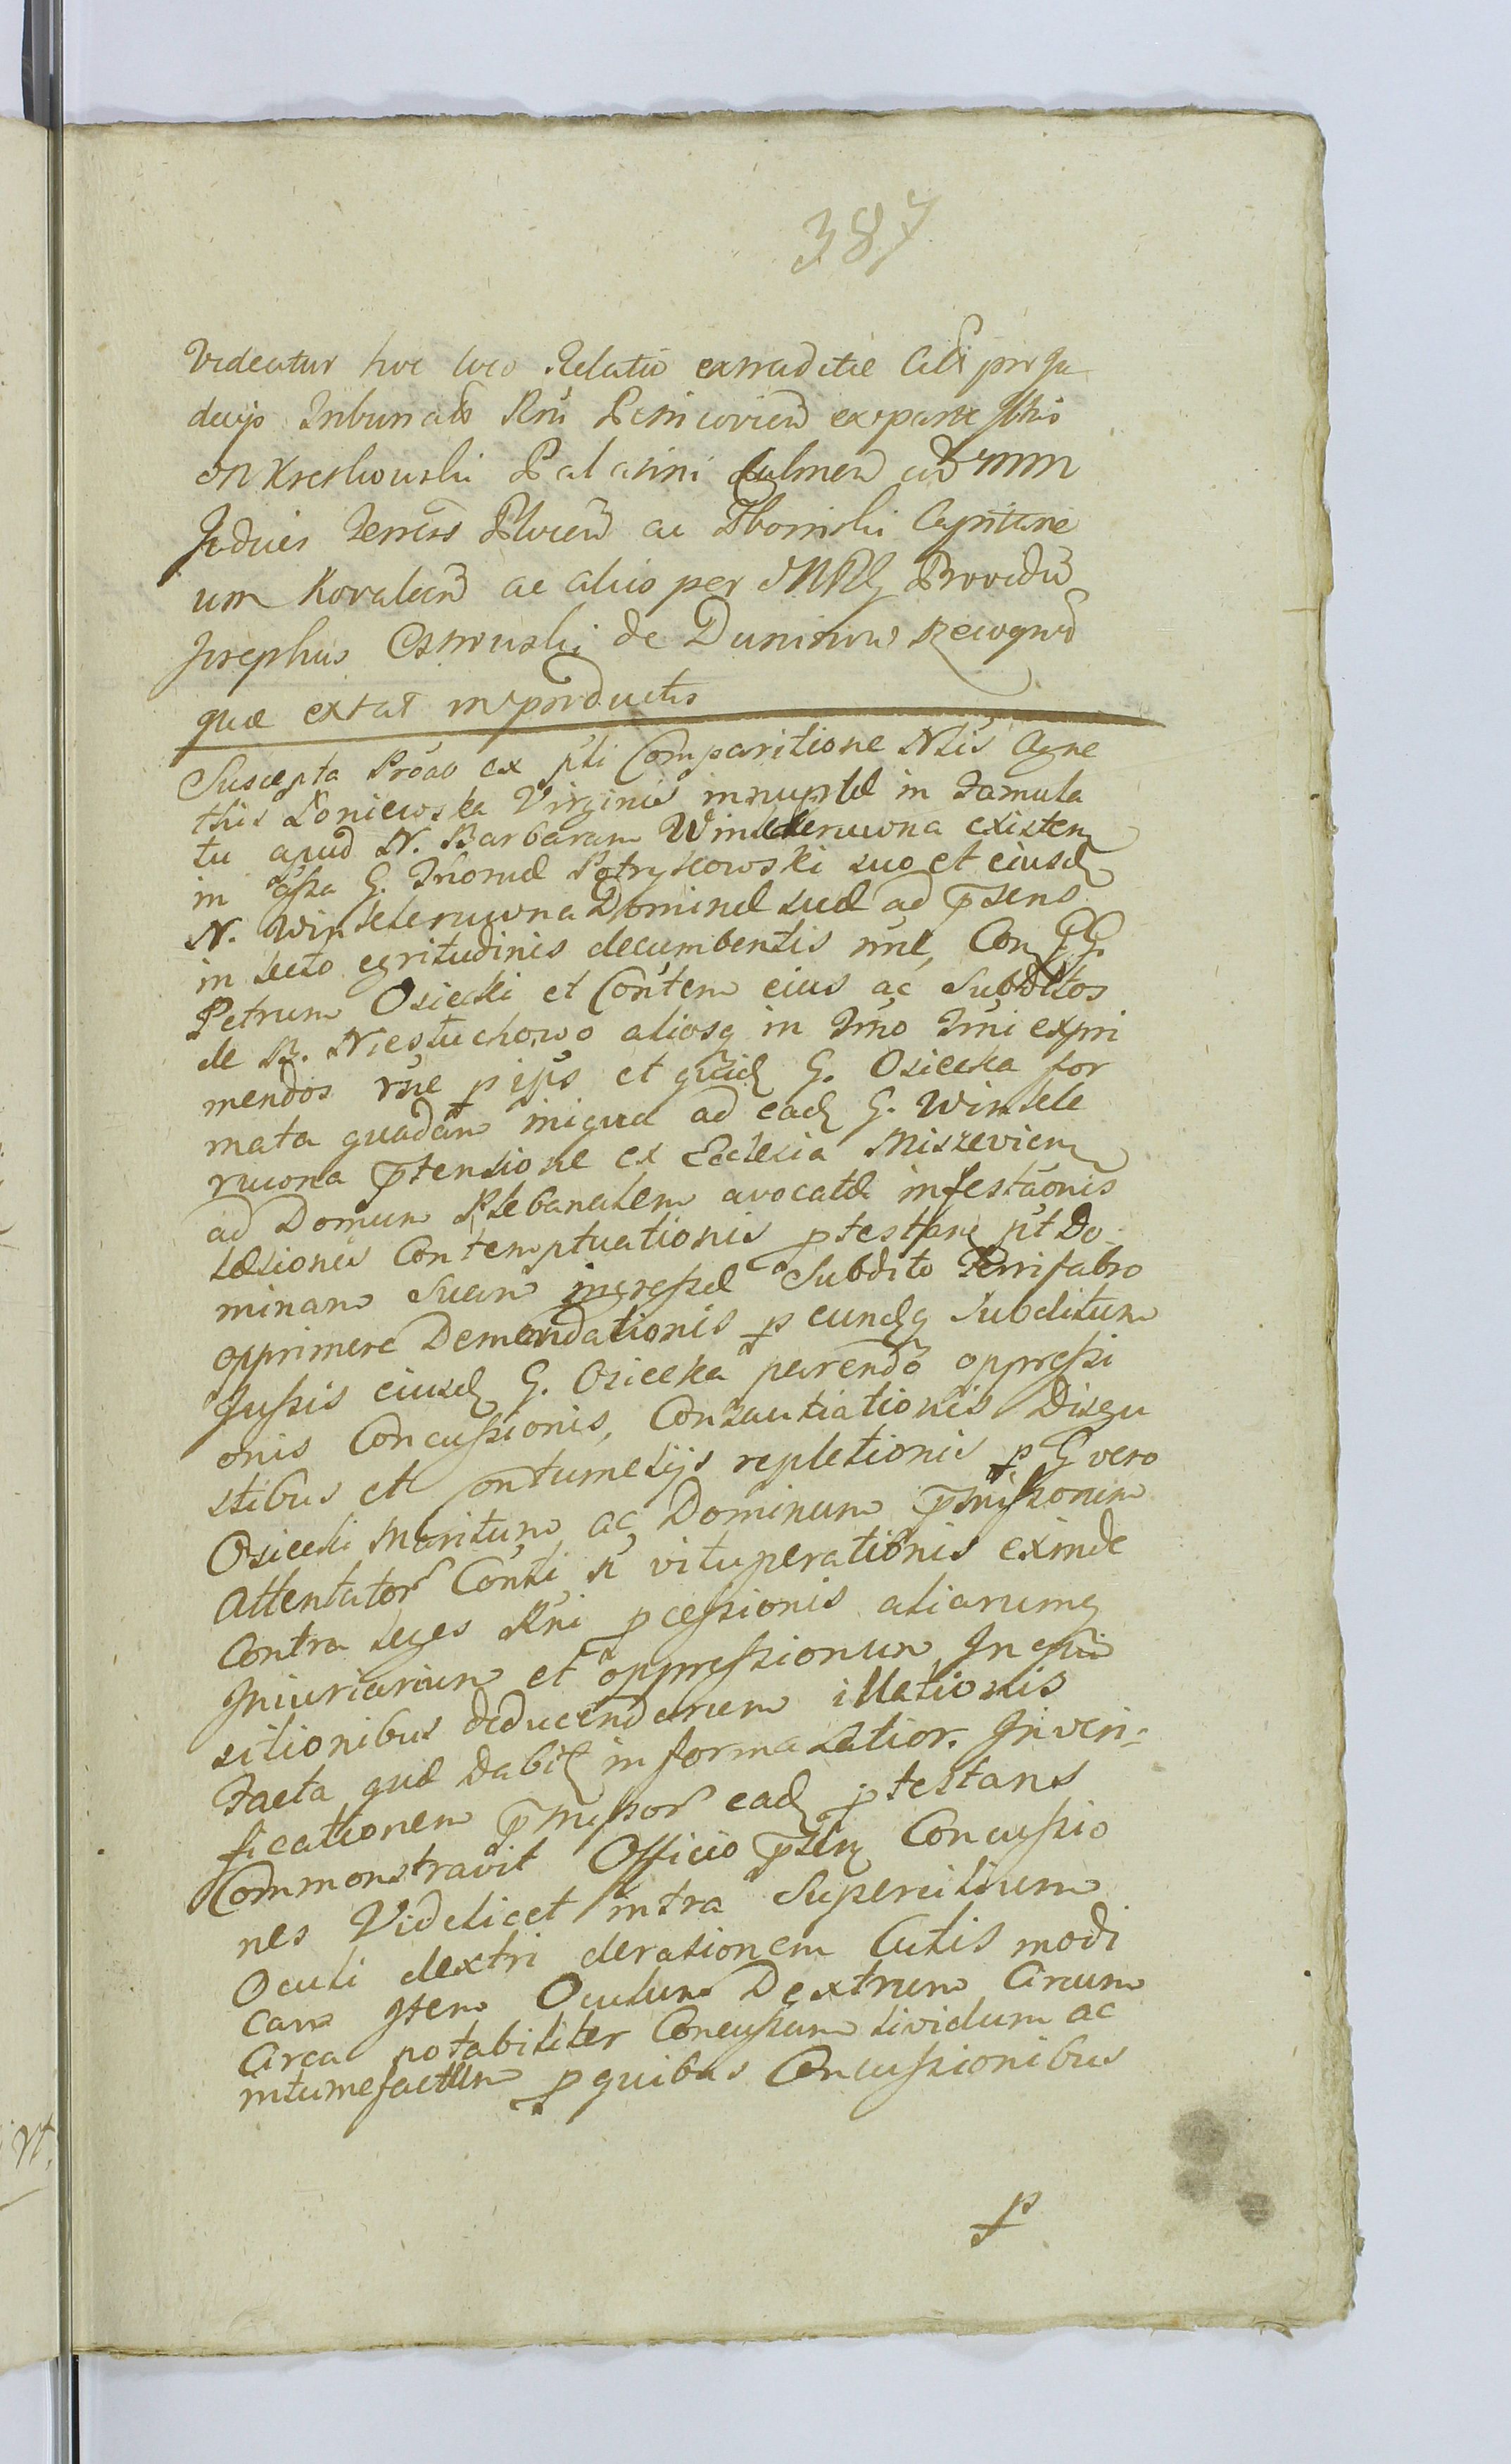 387
Videatur hoc loco Relatio extraditae Citis pro Ju
decijs Tribunalis Rni Petricovien ex parte Illris
M Kretkowski Palatini Culmen ad MM
Judicis Terris Plocen ac Zboinski Capitane
um Kovalen ac alios per MRG Providu
Josephus Ostrowski de Duninow recognt
quae extat in productis
Suscepta Proao ex psti Comparitione Nlis Agne
this Loniewska Virginis innuptae in Famula
tu apud N. Barbaram Winklerowna existen
in assa G. Thomae Petrykowski suo et eiusd
N. Winklerowna Dominae suae ad psens
in lecto egritudinis decumbentis nne, Con GG.
Petrum Osiecki et Contem eius ac Subditos
de B. Niestuchowo aliosq in Tmo Tmi expri
mendos rne p ipos et quid G. Osiecka for
mata quadam iniqua ad ead G. Winkle
rowna ptensione ex Ecclesia Miszevien
ad Domum Plebanalem avocatae infestaonis
laesionis Contemptuationis ptestane ut Do
minam Suam ingressae Subdito Ferrifabro
opprimere Demendationis p eundq Subditum
Jussis eiusd G. Osiecka parendo oppressi
onis Concussionis, Consautiationis Disgu
stibus et Contumelijs repletionis p G vero
Osiecki Maritum ac Dominum pmissorum
Attentator Consti n vituperationis exinde
Contra leges Rni pcessionis aliarumq
Iniuriarum et oppressionum Inqui
sitionibus deducendarum illationis
Facta quae dabit in forma latior. In veri-
ficationem pmissor ead ptestans
Commonstravit Officio psen Concussio
nes Videlicet intra Supercilium
Oculi dextri derasionem Cutis modi
cam Item Oculum Dextrum Circum
Circa notabiliter Concussum lividum ac
intumefactum p quibus Concussionibus
p